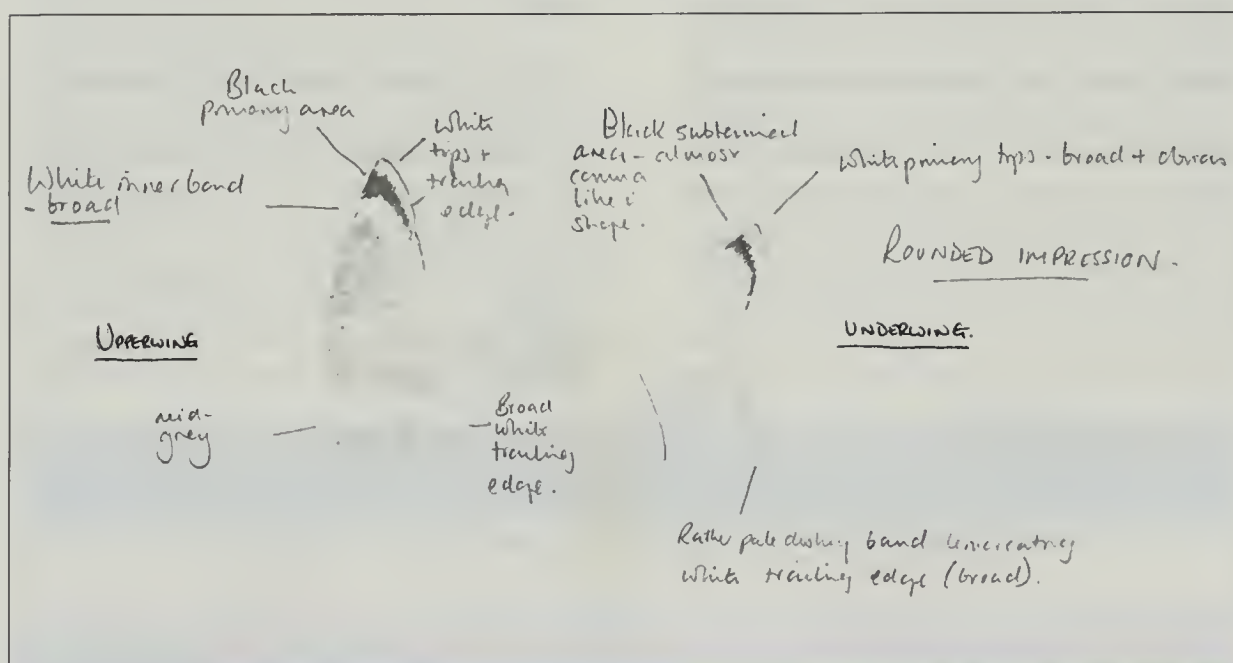 Black
primary area
White
tips +
trailing
edge.
White inner band
- broad
UPPERWING
mid-
grey
Broad
white
trailing
edge.
Black subterminal
area - almost
comma
like in
shape.
White primary tips - broad + obvious
ROUNDED IMPRESSION.
UNDERWING.
Rather pale dusky band
white trailing edge (broad).